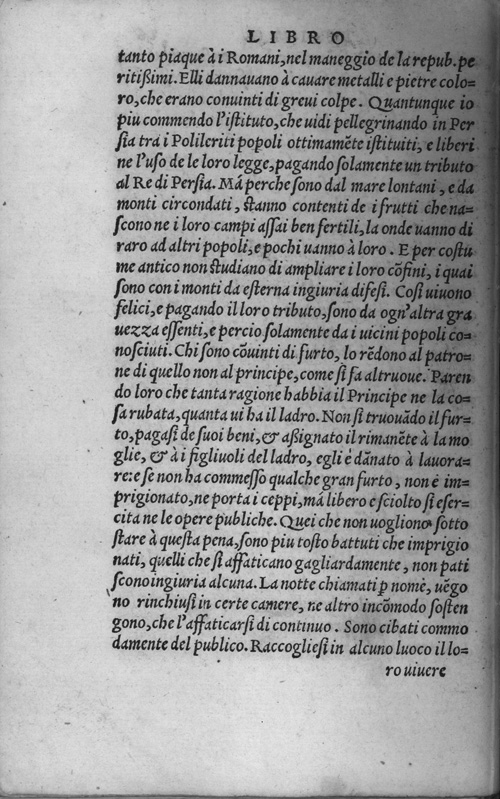 LIBRO
tanto piaque à i Romani, nel maneggio de la repub. pe
ritißimi. Elli dannauano à cauare metalli e pietre colo=
ro, che erano conuinti di greui colpe. Quantunque io
piu commendo l'istituto, che uidi pellegrinando in Per
sia tra i Polileriti popoli ottimamẽte istituiti, e liberi
ne l'uso de le loro legge, pagando solamente un tributo
al Re di Persia. Mà perche sono dal mare lontani, e da
monti circondati, stanno contenti de i frutti che na=
scono ne i loro campi assai ben fertili, la onde uanno di
raro ad altri popoli, e pochi uanno à loro. E per costu
me antico non studiano di ampliare i loro cõfini, i quai
sono con i monti da esterna ingiuria difesi. Cosi uiuono
felici, e pagando il loro tributo, sono da ogn'altra gra
uezza essenti, e percio solamente da i uicini popoli co=
nosciuti. Chi sono cõuinti di furto, lo rẽdono al patro=
ne di quello non al principe, come si fa altruoue. Paren
do loro che tanta ragione habbia il Principe ne la co=
sa rubata, quanta ui ha il ladro. Non si truouãdo il fur=
to, pagasi de suoi beni, & aßignato il rimanẽte à la mo
glie, & à i figliuoli del ladro, egli è dãnato à lauora=
re: e se non ha commesso qualche gran furto, non è im=
prigionato, ne porta i ceppi, mà libero e sciolto si eser=
cita ne le opere publiche. Quei che non uogliono sotto
stare à questa pena, sono piu tosto battuti che imprigio
nati, quelli che si affaticano gagliardamente, non pati
scono ingiuria alcuna. La notte chiamati ꝑ nome, uẽgo
no rinchiusi in certe camere, ne altro incõmodo sosten
gono, che l'affaticarsi di continuo. Sono cibati commo
damente del publico. Raccogliesi in alcuno luoco il lo=
ro uiuere